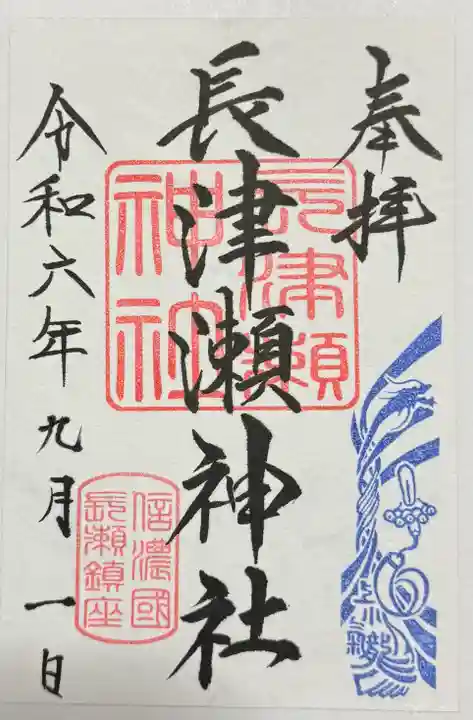 奉拝
長津瀬神社
長津瀬
神社
信濃國
長瀬鎮座
令和六年九月一日